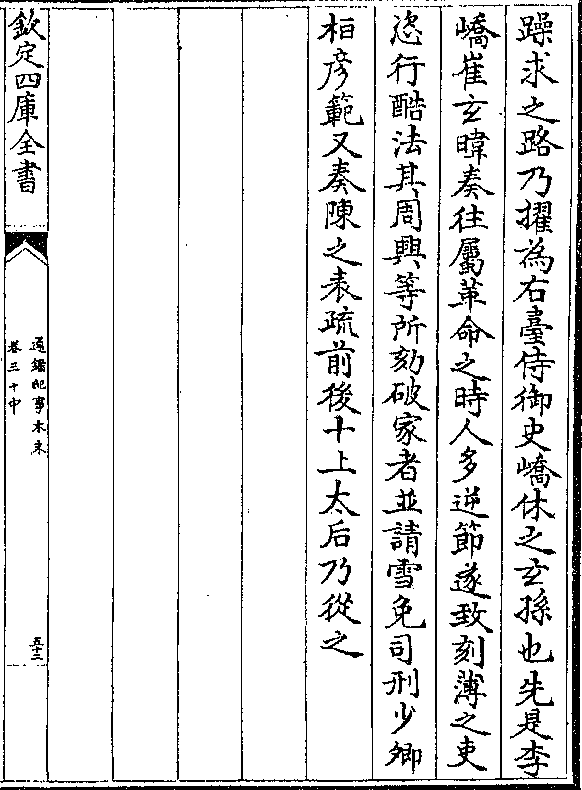 躁求之路乃擢為右臺侍御史嶠休之玄孫也先是李
嶠崔玄暐奏往屬革命之時人多逆節遂致刻薄之吏
恣行酷法其周興等所劾破家者並請雪免司刑少卿
桓彥範又奏陳之表疏前後十上太后乃從之
欽定四庫全書
通鑑紀事本末
卷三十中
五十三